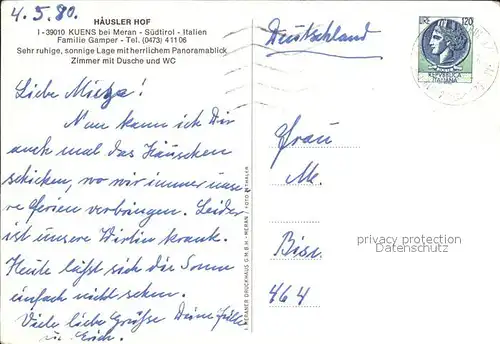 4.5.80.
HÄUSLER HOF
I -39010 KUENS bei Meran - Südtirol - Italien
Familie Gamper - Tel. (0473) 41106
Sehr ruhige, sonnige Lage mit herrlichem Panoramablick
Zimmer mit Dusche und WC
Liebe Mietza!
Nun kann ich Dir
auch mal das Häuschen
schicken, wo wir immer unse
re Ferien verbringen. Leider
ist unsere Wirtin krank.
Heute läßt sich die Sonne
einfach nicht sehen.
Viele liebe Grüße Deine
u. Erich.
MERANER DRUCKHAUS G.M.B.H. - MERAN / FOTO
Deutschland
LIRE 120
REPVBBLICA
ITALIANA
Frau
M.
464
privacy protection
Datenschutz